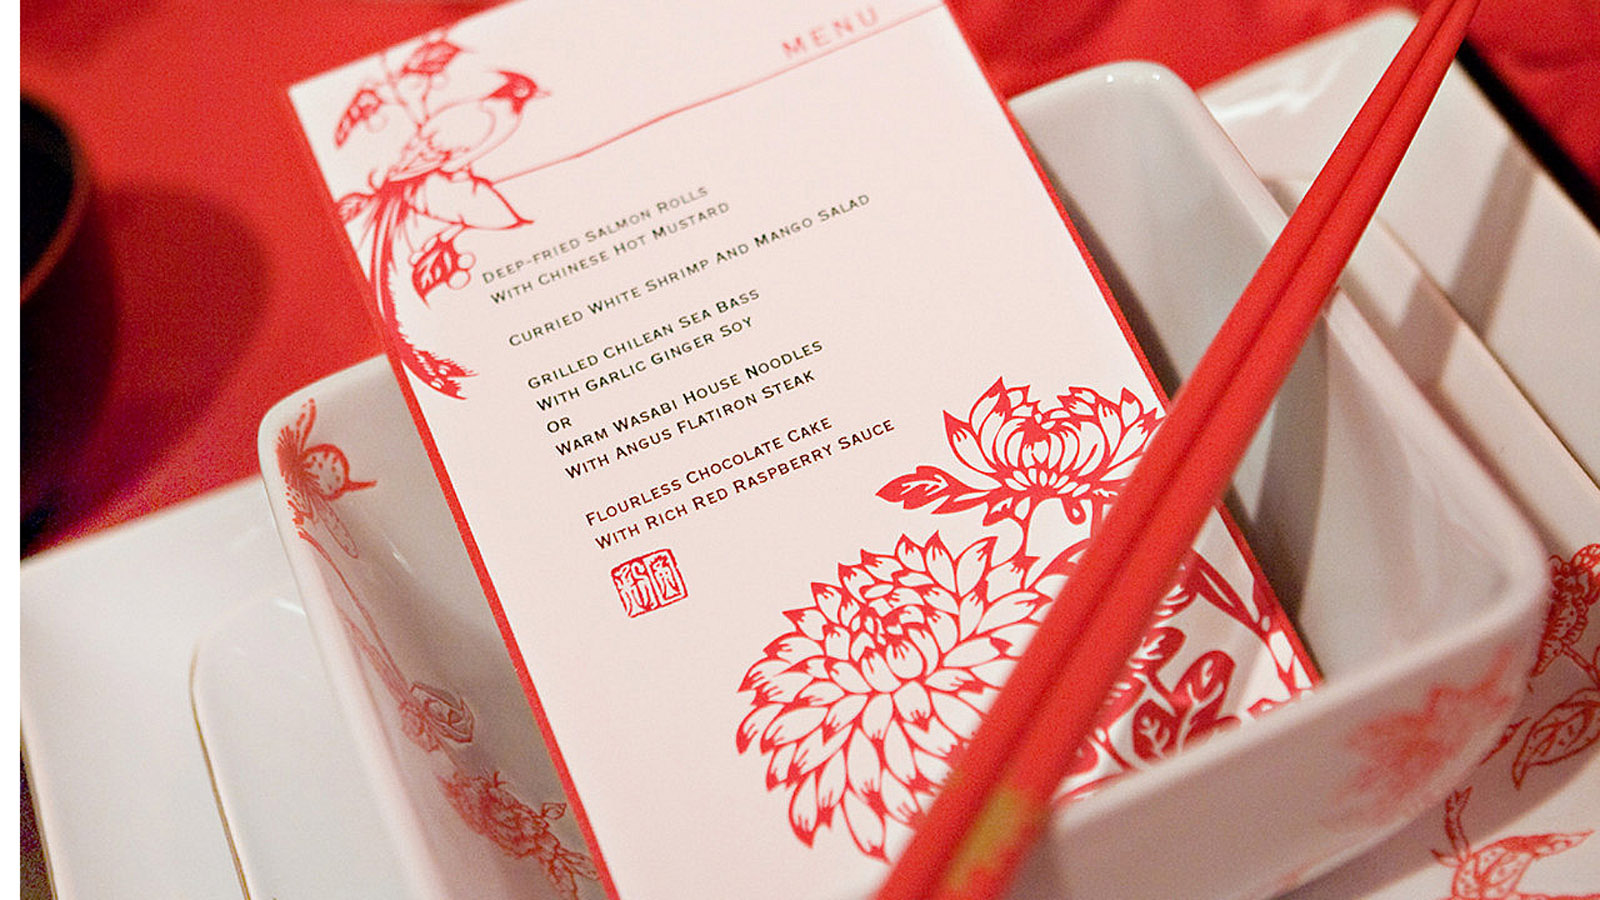 MENU
DEEP-FRIED SALMON ROLLS
WITH CHINESE HOT MUSTARD
CURRIED WHITE SHRIMP AND MANGO SALAD
GRILLED CHILEAN SEA BASS
WITH GARLIC GINGER SOY
OR
WARM WASABI HOUSE NOODLES
WITH ANGUS FLATIRON STEAK
FLOURLESS CHOCOLATE CAKE
WITH RICH RED RASPBERRY SAUCE